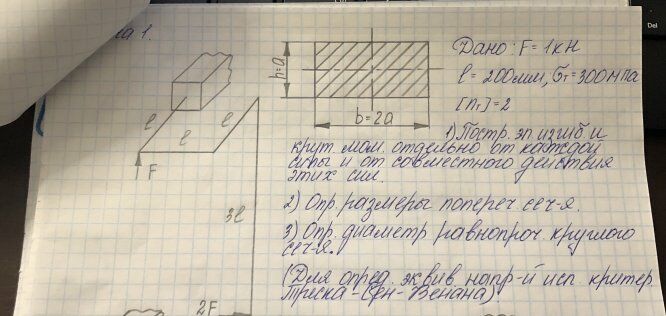 а 1.
Дано: F = 1кН
l = 200мм, σт = 300мПа
[nт] = 2
h=a
b=2a
l
l
l
F
3l
2F
1) Постр. эп изгиб и
крут мом. отдельно от каждой
силы и от совместного действия
этих сил.
2) Опр. размеры попереч сеч-я.
3) Опр. диаметр равнопроч. круглого
сеч-я.
(Для опред. эквив напр-й исп. критер
Треска-Сен-Венана)